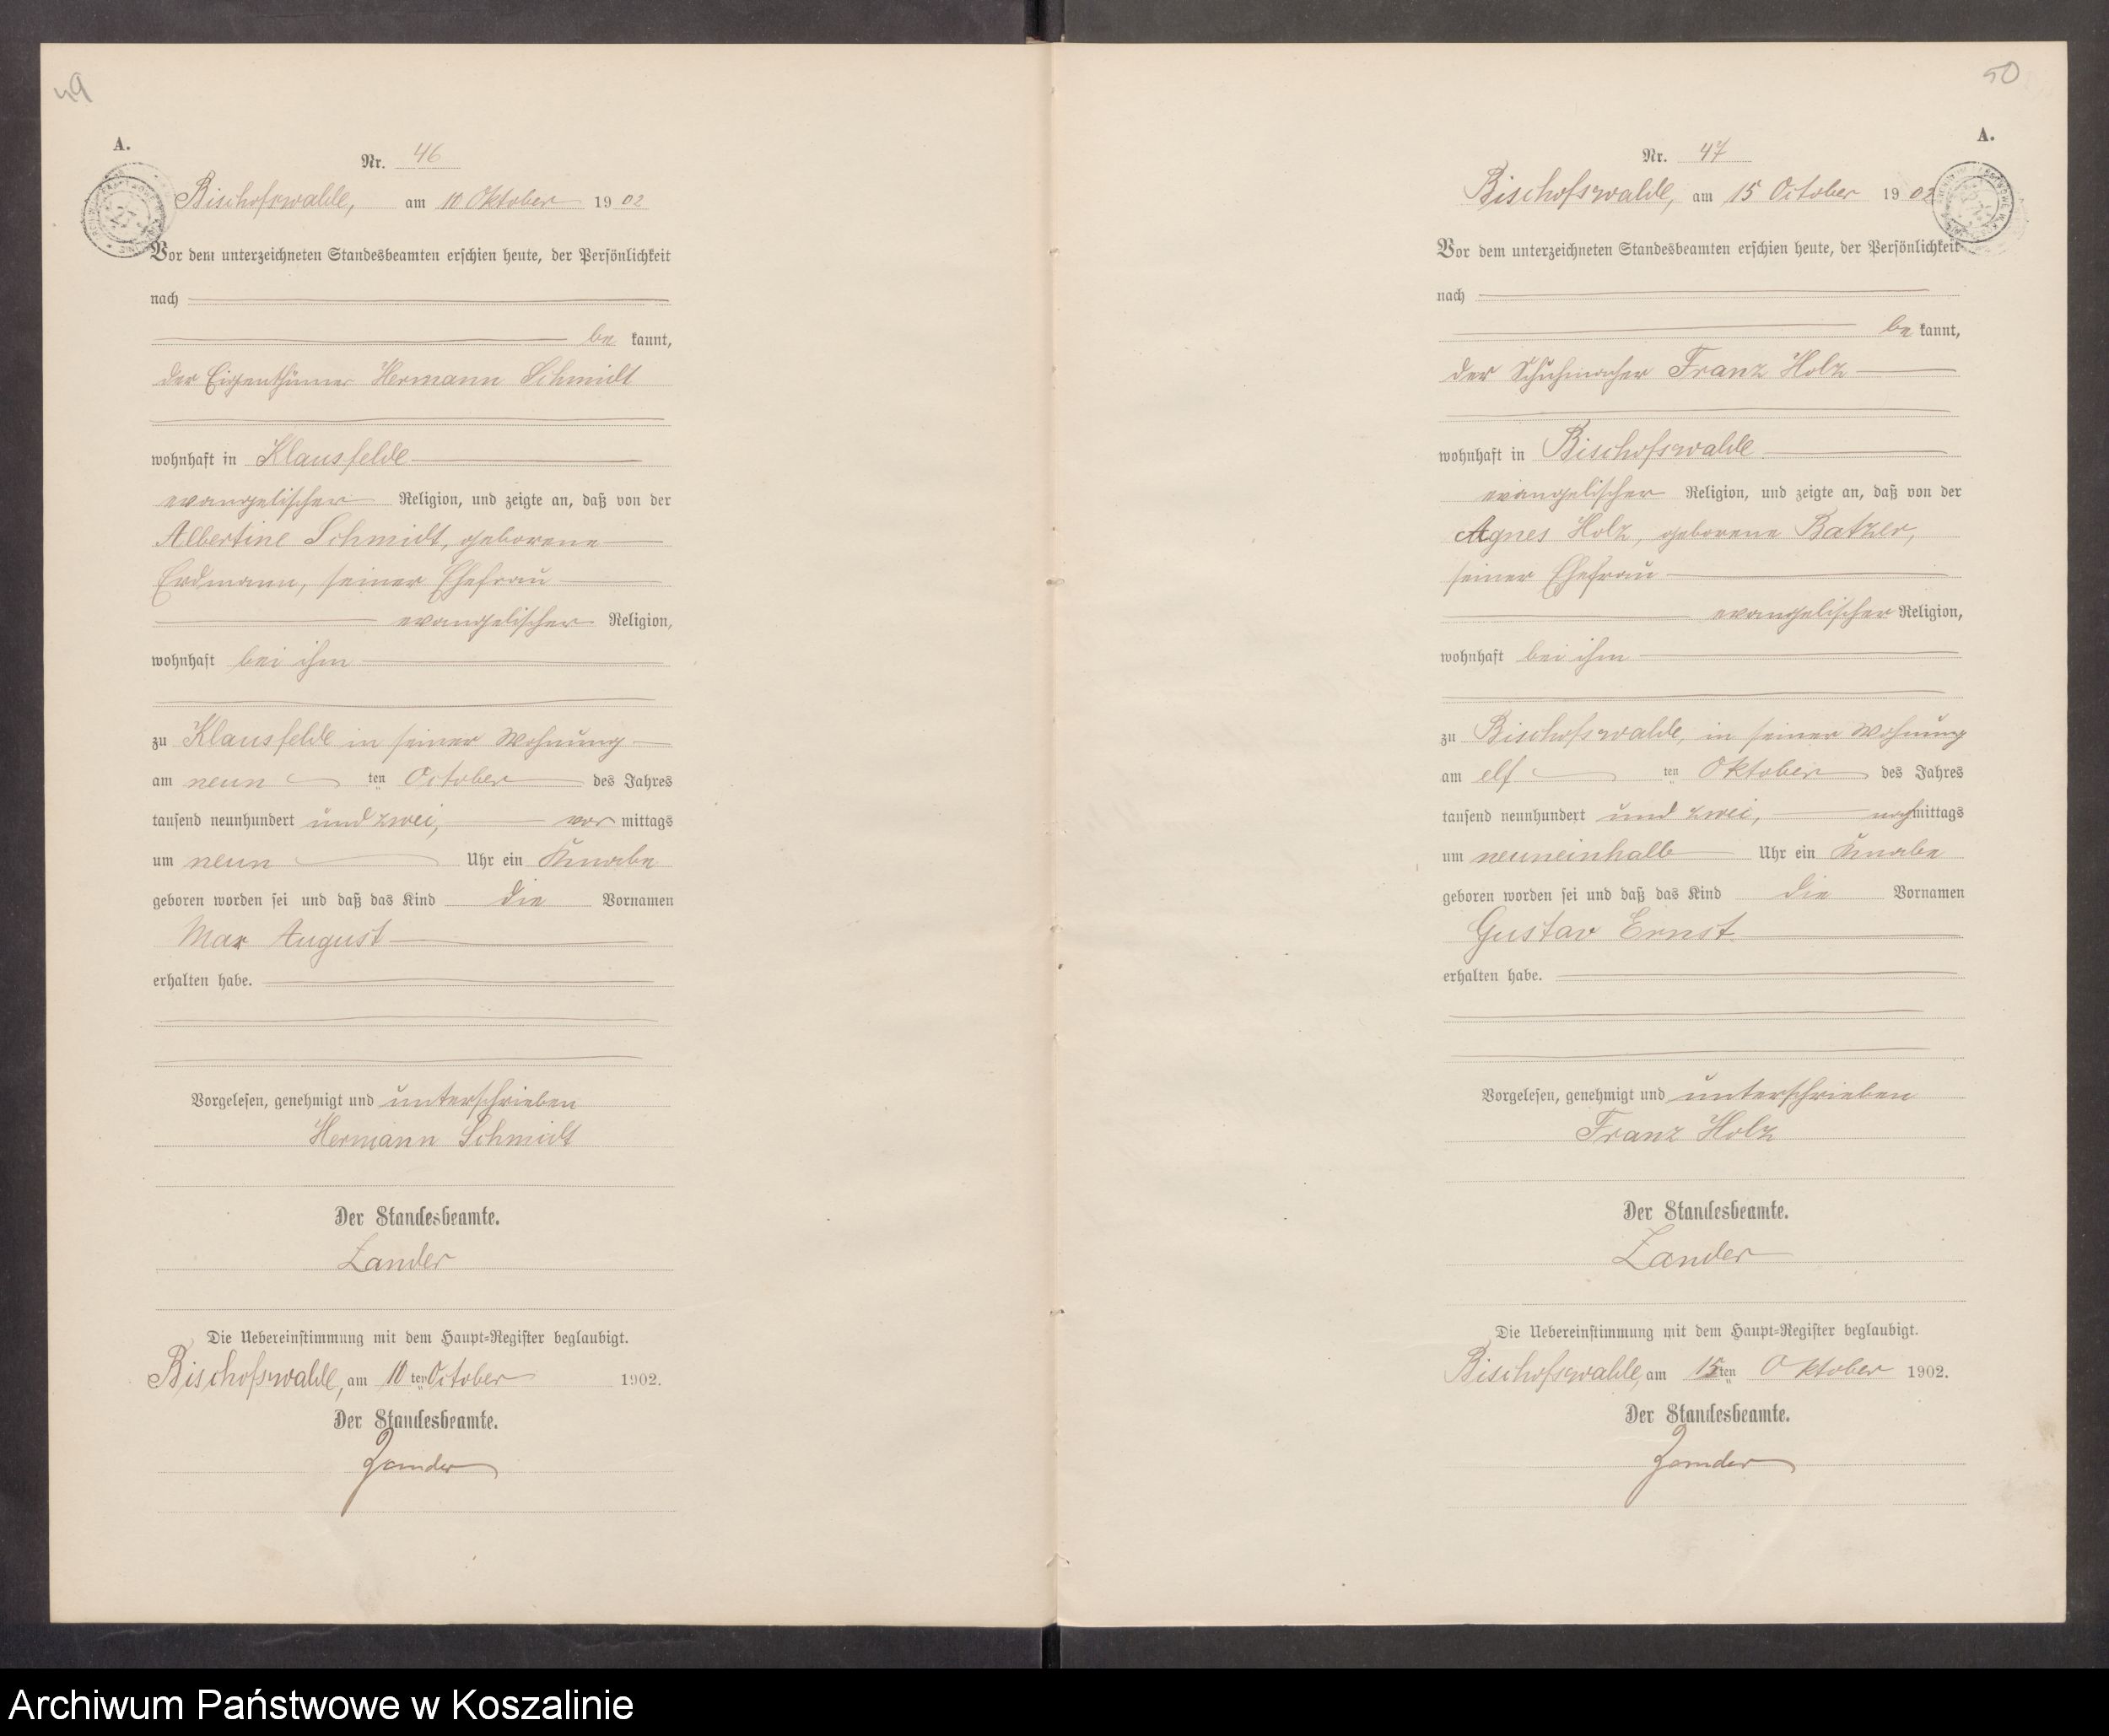 49
A.
Nr. 46
Bischofswalde, am 10 Oktober 1902
Vor dem unterzeichneten Standesbeamten erschien heute, der Persönlichkeit
nach
be kannt,
der Eigenthümer Hermann Schmidt
wohnhaft in Klausfelde
evangelischer Religion, und zeigte an, daß von der
Albertine Schmidt, geborene
Erdmann, seiner Ehefrau
evangelischer Religion,
wohnhaft bei ihm
zu Klausfelde in seiner Wohnung
am neun ten October des Jahres
tausend neunhundert und zwei, vor mittags
um neun Uhr ein Knabe
geboren worden sei und daß das Kind die Vornamen
Max August
erhalten habe.
Vorgelesen, genehmigt und unterschrieben
Hermann Schmidt
Der Standesbeamte.
Zander
Die Uebereinstimmung mit dem Haupt-Register beglaubigt.
Bischofswalde, am 10 ten October 1902.
Der Standesbeamte.
Zander
50
A.
Nr. 47
Bischofswalde, am 15 October 1902
Vor dem unterzeichneten Standesbeamten erschien heute, der Persönlichkeit
nach
be kannt,
der Schuhmacher Franz Holz
wohnhaft in Bischofswalde
evangelischer Religion, und zeigte an, daß von der
Agnes Holz, geborene Batzer,
seiner Ehefrau
evangelischer Religion,
wohnhaft bei ihm
zu Bischofswalde, in seiner Wohnung
am elf ten Oktober des Jahres
tausend neunhundert und zwei, nachmittags
um neuneinhalb Uhr ein Knabe
geboren worden sei und daß das Kind die Vornamen
Gustav Ernst
erhalten habe.
Vorgelesen, genehmigt und unterschrieben
Franz Holz
Der Standesbeamte.
Zander
Die Uebereinstimmung mit dem Haupt-Register beglaubigt.
Bischofswalde, am 15ten Oktober 1902.
Der Standesbeamte.
Zander
Archiwum Państwowe w Koszalinie